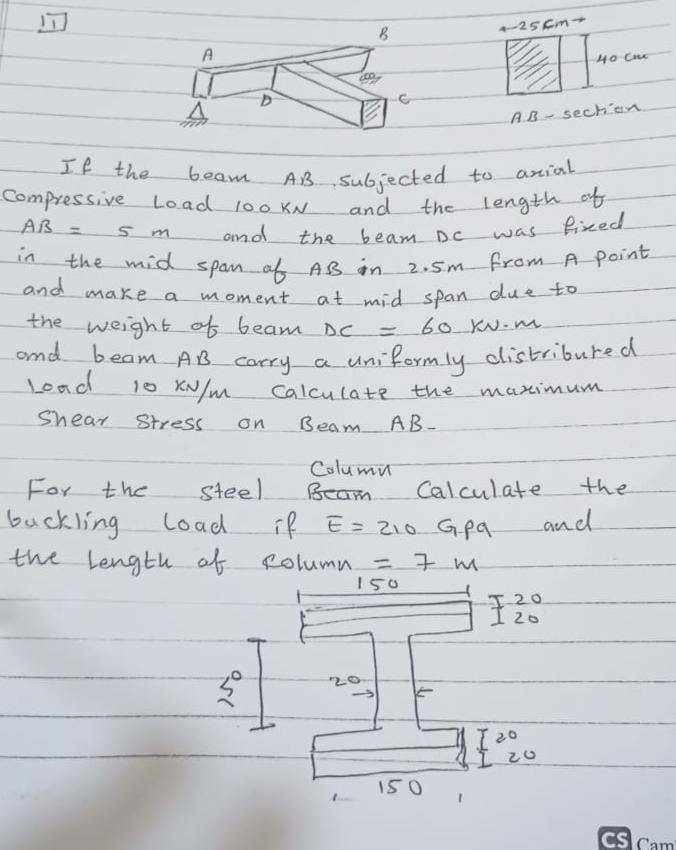 1
A
B
D
C
25 cm
40 cm
AB - section
If the beam AB subjected to axial
Compressive Load 100 KN and the length of
AB = 5 m and the beam DC was fixed
in the mid span of AB in 2.5m from A point
and make a moment at mid span due to
the weight of beam DC = 60 KN.m
and beam AB carry a uniformly distributed
Load 10 KN/m Calculate the maximum
Shear Stress on Beam AB-
Column
For the steel Beam Calculate the
buckling Load if E = 210 Gpa and
the Length of Column = 7 m
150
20
20
20
20
20
150
CS Cam